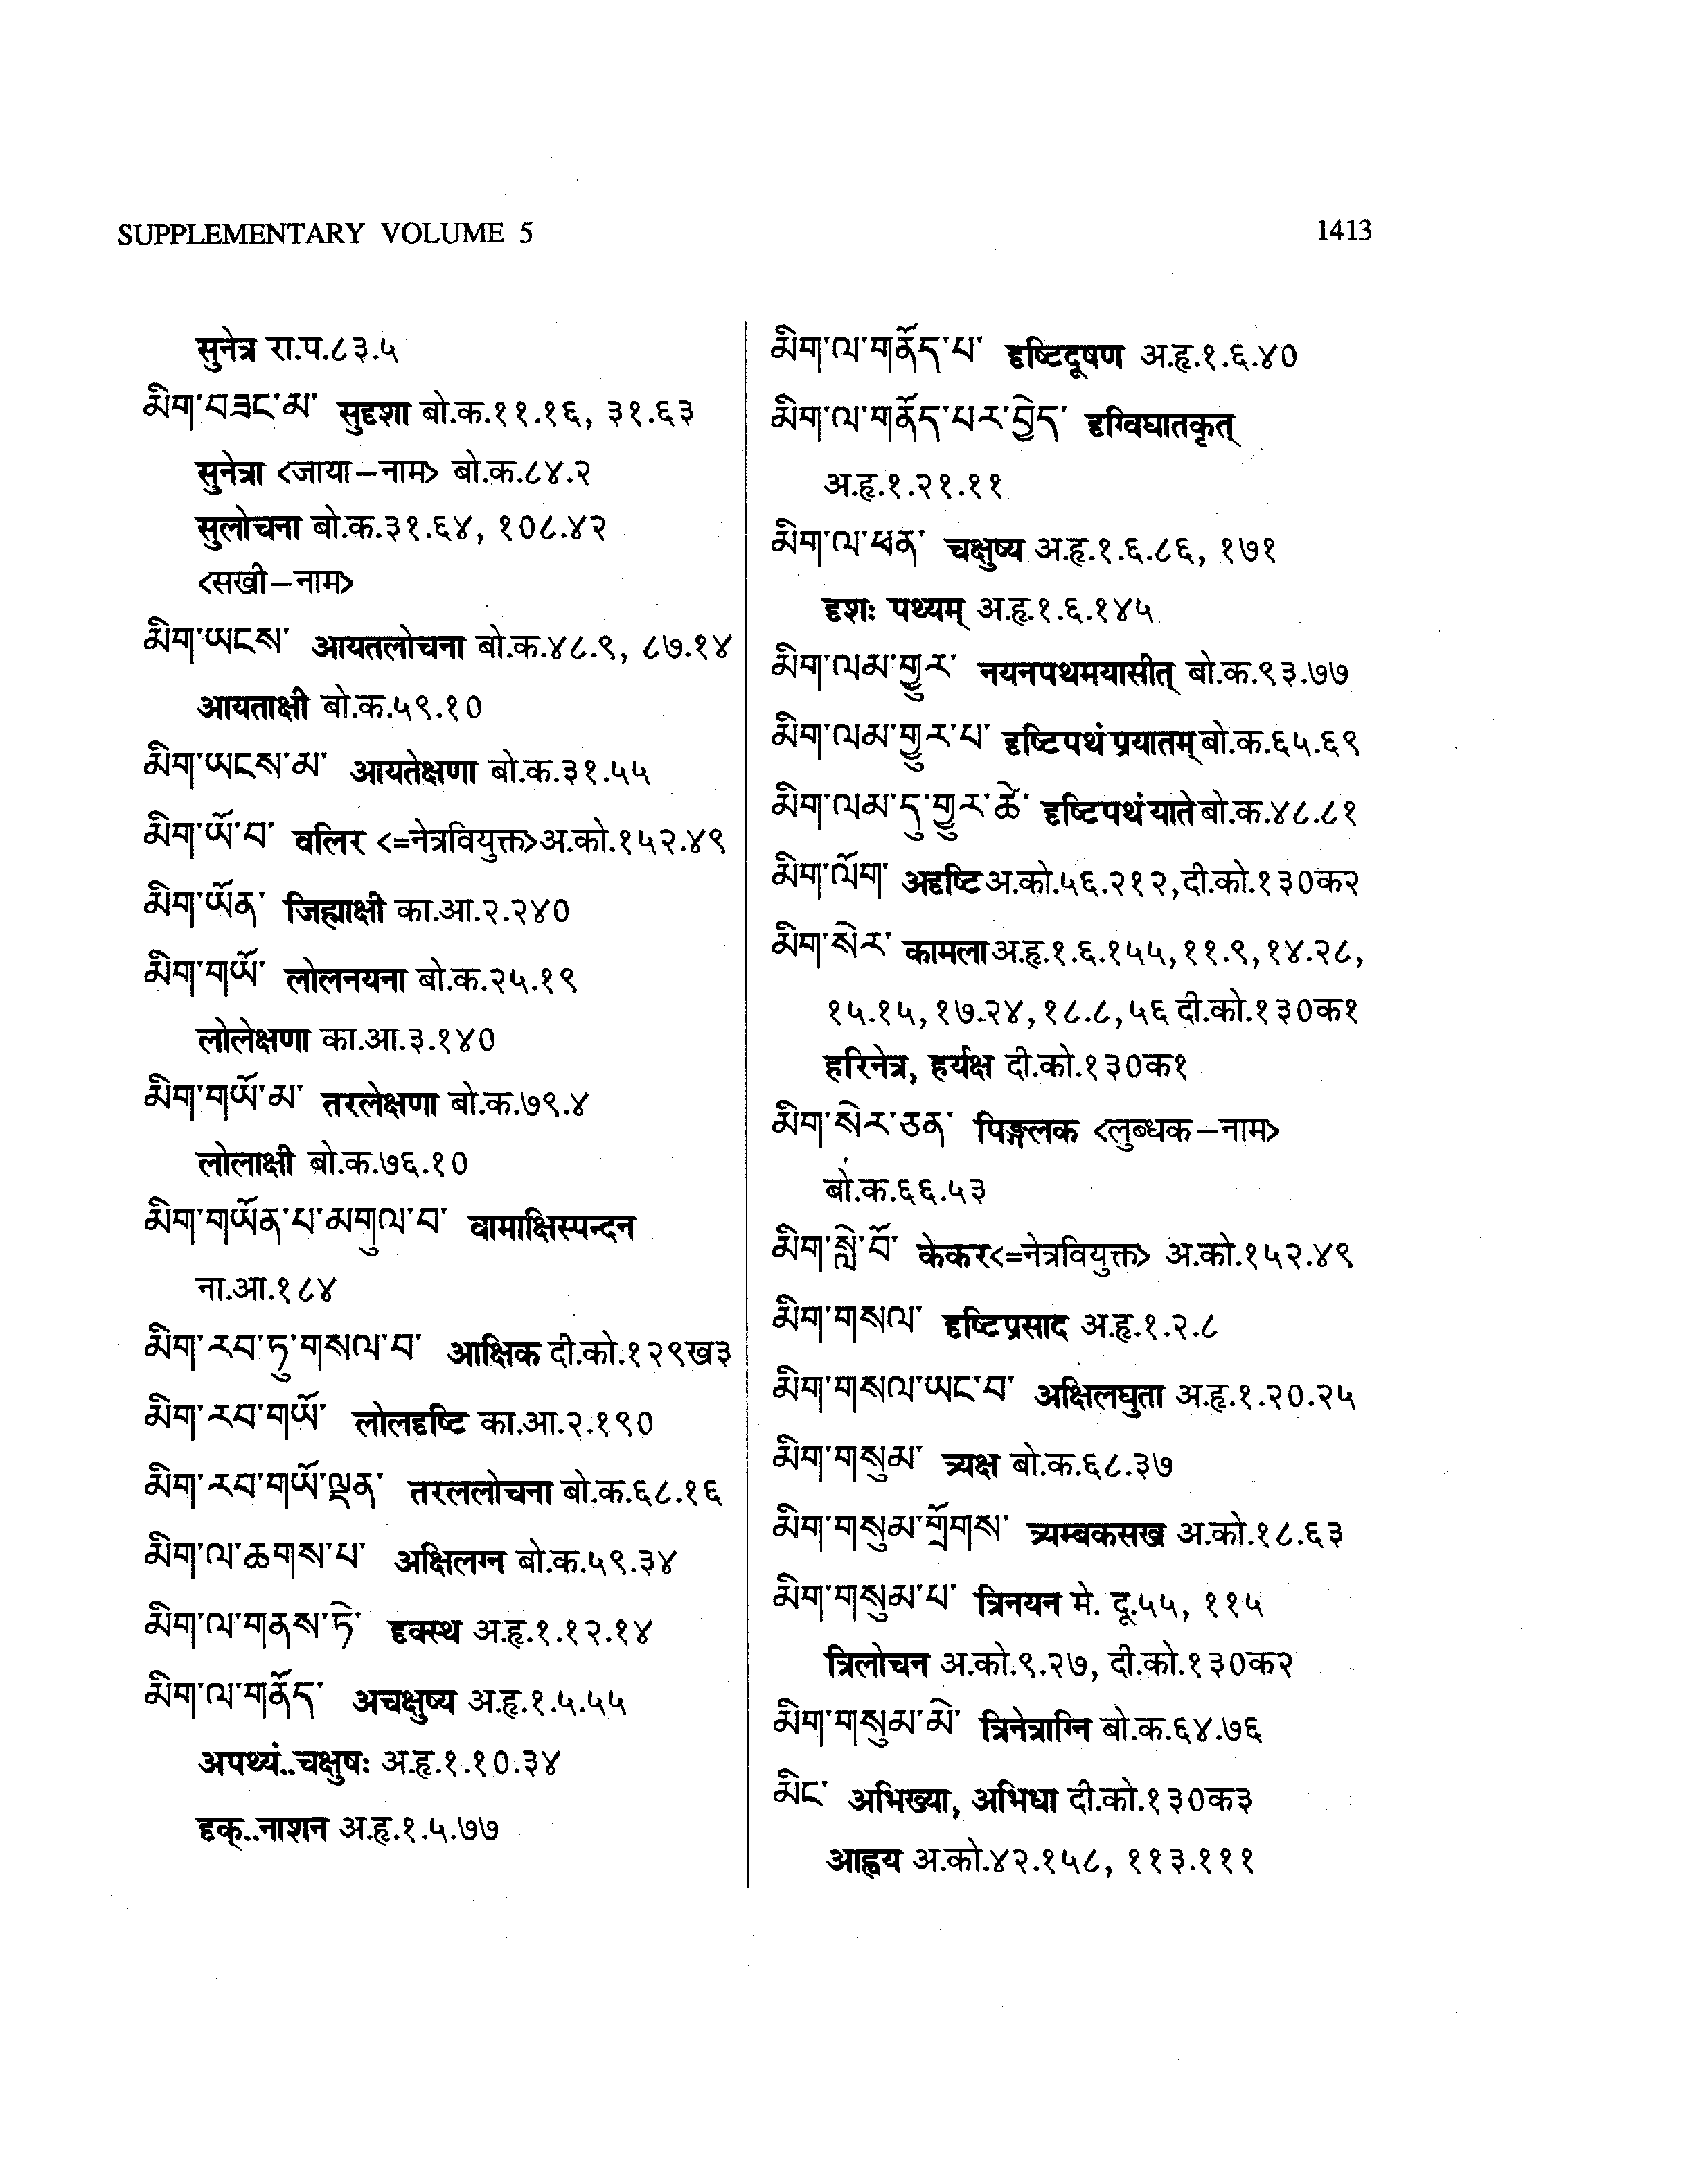 SUPPLEMENTARY VOLUME 5
1413
सुनेत्र रा.प.८३.५
མིག་བཟང་མ་ सुदृशा बो.क.११.१६, ३१.६३
सुनेत्रा <जाया–नाम> बो.क.८४.२
सुलोचना बो.क.३१.६४, १०८.४२
<सखी–नाम>
མིག་ཡངས་ आयतलोचना बो.क.४८.९, ८७.१४
आयताक्षी बो.क.५९.१०
མིག་ཡངས་མ་ आयतेक्षणा बो.क.३१.५५
མིག་ཡོ་བ་ वलिर <=नेत्रवियुक्त>अ.को.१५२.४९
མིག་ཡོན་ जिह्माक्षी का.आ.२.२४०
མིག་གཡོ་ लोलनयना बो.क.२५.१९
लोलेक्षणा का.आ.३.१४०
མིག་གཡོ་མ་ तरलेक्षणा बो.क.७९.४
लोलाक्षी बो.क.७६.१०
མིག་གཡོན་པ་མགུལ་བ་ वामाक्षिस्पन्दन
ना.आ.१८४
མིག་རབ་ཏུ་གསལ་བ་ आक्षिक दी.को.१२९ख३
མིག་རབ་གཡོ་ लोलदृष्टि का.आ.२.१९०
མིག་རབ་གཡོ་ལྡན་ तरललोचना बो.क.६८.१६
མིག་ལ་ཆགས་པ་ अक्षिलग्न बो.क.५९.३४
མིག་ལ་གནས་ཏེ་ दृक्स्थ अ.हृ.१.१२.१४
མིག་ལ་གནོད་ अचक्षुष्य अ.हृ.१.५.५५
अपथ्यं..चक्षुषः अ.हृ.१.१०.३४
दृक्..नाशन अ.हृ.१.५.७७
མིག་ལ་གནོད་པ་ दृष्टिदूषण अ.हृ.१.६.४०
མིག་ལ་གནོད་པར་བྱེད་ दृग्विघातकृत्
अ.हृ.१.२१.११
མིག་ལ་ཕན་ चक्षुष्य अ.हृ.१.६.८६, १७१
दृशः पथ्यम् अ.हृ.१.६.१४५
མིག་ལམ་གྱུར་ नयनपथमयासीत् बो.क.९३.७७
མིག་ལམ་གྱུར་པ་ दृष्टिपथं प्रयातम् बो.क.६५.६९
མིག་ལམ་དུ་གྱུར་ཚེ་ दृष्टिपथं याते बो.क.४८.८१
མིག་ལོག་ अदृष्टि अ.को.५६.२१२,दी.को.१३०क२
མིག་སེར་ कामला अ.हृ.१.६.१५५,११.९,१४.२८,
१५.१५,१७.२४,१८.८,५६ दी.को.१३०क१
हरिनेत्र, हर्यक्ष दी.को.१३०क१
མིག་སེར་ཅན་ पिङ्गलक <लुब्धक–नाम>
बो.क.६६.५३
མིག་སླེ་བོ་ केकर<=नेत्रवियुक्त> अ.को.१५२.४९
མིག་གསལ་ दृष्टिप्रसाद अ.हृ.१.२.८
མིག་གསལ་ཡང་བ་ अक्षिलघुता अ.हृ.१.२०.२५
མིག་གསུམ་ त्र्यक्ष बो.क.६८.३७
མིག་གསུམ་གྲོགས་ त्र्यम्बकसख अ.को.१८.६३
མིག་གསུམ་པ་ त्रिनयन मे. दू.५५, ११५
त्रिलोचन अ.को.९.२७, दी.को.१३०क२
མིག་གསུམ་མེ་ त्रिनेत्राग्नि बो.क.६४.७६
མིང་ अभिख्या, अभिधा दी.को.१३०क३
आह्वय अ.को.४२.१५८, ११३.१११